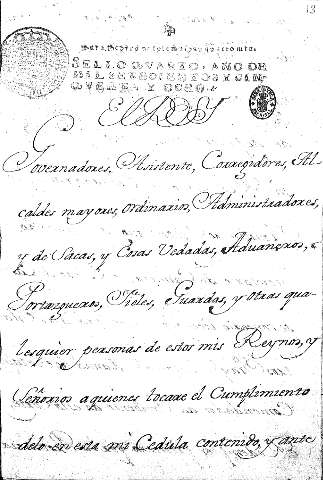 13
SELLO QVARTO, AÑO DE
MIL SETECIENTOS Y CIN-
QVENTA Y OCHO.
El REY
Governadores, Asistente, Corregidores, Al-
caldes mayores, ordinarios, Administradores,
y de Sacas, y Cosas Vedadas, Aduaneros,
Portazgueros, Fieles, Guardas, y otras qua-
lesquier personas de estos mis Reynos, y
Señorios aquienes tocare el Cumplimiento
delo en esta mi Cedula contenido, y ante